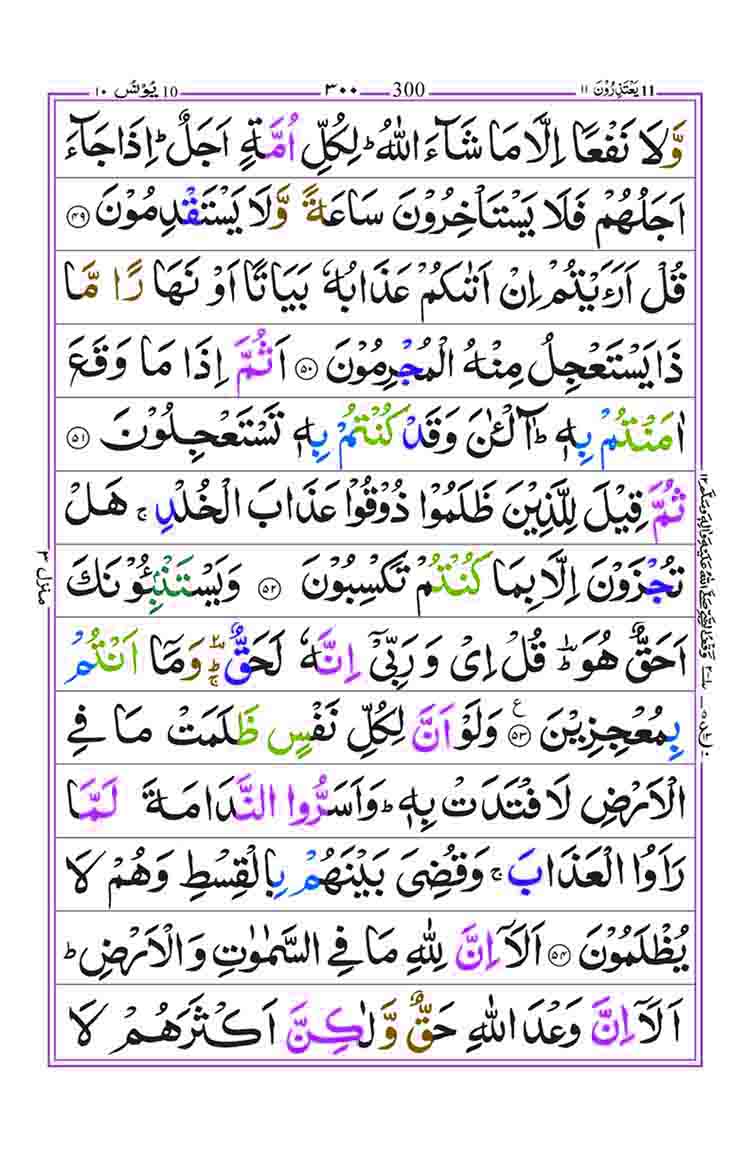 یَعْتَذِرُوْنَ ١١ 11 300 ٣٠٠ یُوْنُس 10 ١٠
وَّلَا نَفْعًا اِلَّا مَا شَآءَ اللّٰهُ ؕ لِكُلِّ اُمَّةٍ اَجَلٌ ؕ اِذَا جَآءَ
اَجَلُهُمْ فَلَا یَسْتَاْخِرُوْنَ سَاعَةً وَّلَا یَسْتَقْدِمُوْنَ ۝٤٩
قُلْ اَرَءَیْتُمْ اِنْ اَتٰىكُمْ عَذَابُهٗ بَیَاتًا اَوْ نَهَارًا مَّا
ذَا یَسْتَعْجِلُ مِنْهُ الْمُجْرِمُوْنَ ۝٥٠ اَثُمَّ اِذَا مَا وَقَعَ
اٰمَنْتُمْ بِهٖ ؕ آٰلْـٰٔنَ وَقَدْ كُنْتُمْ بِهٖ تَسْتَعْجِلُوْنَ ۝٥١
ثُمَّ قِیْلَ لِلَّذِیْنَ ظَلَمُوْا ذُوْقُوْا عَذَابَ الْخُلْدِ ۚ هَلْ
تُجْزَوْنَ اِلَّا بِمَا كُنْتُمْ تَكْسِبُوْنَ ۝٥٢ وَیَسْتَنْۢبِـُٔوْنَكَ
اَحَقٌّ هُوَ ؕ قُلْ اِیْ وَرَبِّیْۤ اِنَّهٗ لَحَقٌّ ؔؕ وَمَاۤ اَنْتُمْ
بِمُعْجِزِیْنَ ۝٥٣ ع وَلَوْ اَنَّ لِكُلِّ نَفْسٍ ظَلَمَتْ مَا فِی
الْاَرْضِ لَافْتَدَتْ بِهٖ ؕ وَاَسَرُّوا النَّدَامَةَ لَمَّا
رَاَوُا الْعَذَابَ ۚ وَقُضِیَ بَیْنَهُمْ بِالْقِسْطِ وَهُمْ لَا
یُظْلَمُوْنَ ۝٥٤ اَلَاۤ اِنَّ لِلّٰهِ مَا فِی السَّمٰوٰتِ وَالْاَرْضِ ؕ
اَلَاۤ اِنَّ وَعْدَ اللّٰهِ حَقٌّ وَّلٰكِنَّ اَكْثَرَهُمْ لَا
منزل ٣